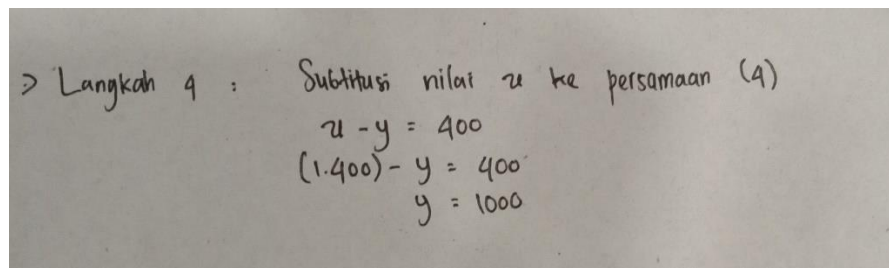 => Langkah 4 : Subtitusi nilai x ke persamaan (4)
x - y = 400
(1.400) - y = 400
y = 1000